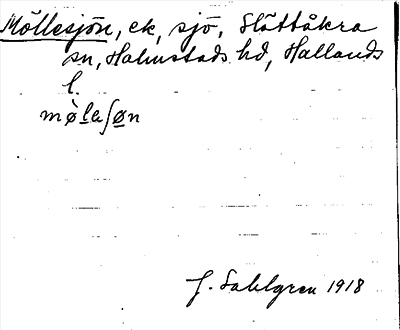 Möllesjön, ek, sjö, Slättåkra
sn, Halmstads hd, Hallands
l.
mø̀leʃøn
J. Sahlgren 1918